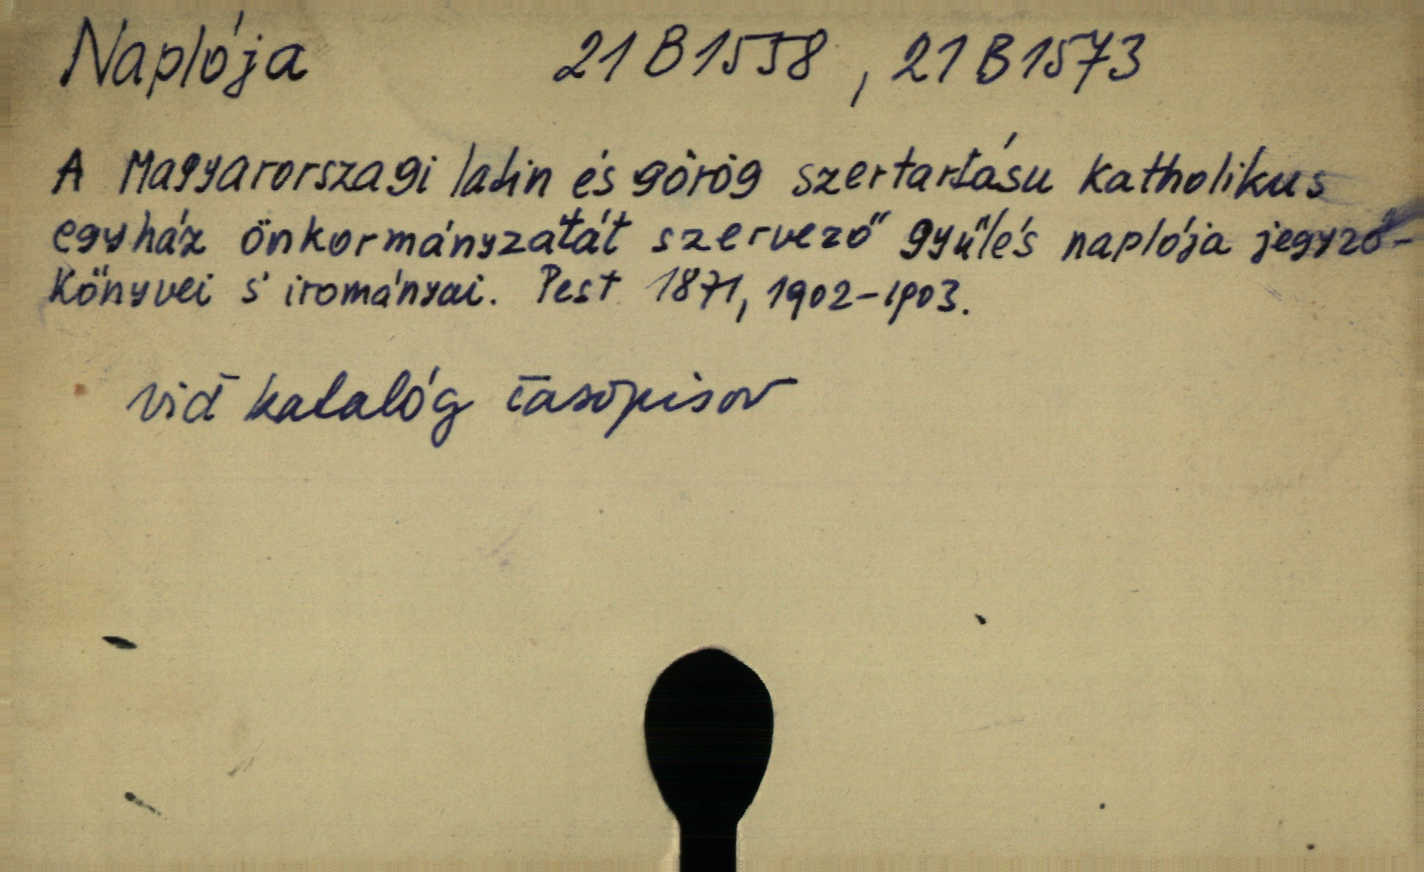 Naplója 21 B 1558, 21 B 1573
A Magyarországi latin és görög szertartásu katholikus
egyház önkormányzatát szervező gyűlés naplója jegyző-
könyvei s' irományai. Pest 1871, 1902-1903.
viď katalóg časopisov